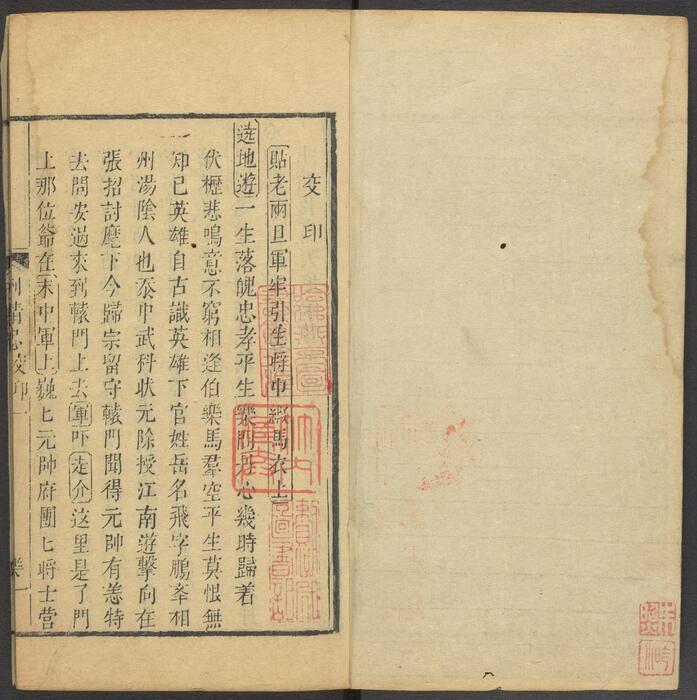 交印
貼老兩旦軍牢引生將巾緞馬衣上
遶地遊一生落魄忠孝平生樂丹心幾時歸着
伏櫪悲鳴意不窮相逢伯樂馬羣空平生莫恨無
知已英雄自古識英雄下官姓岳名飛字鵬举相
州湯陰人也忝中武科狀元除授江南遊擊向在
張招討麾下今歸宗留守轅門聞得元帥有恙特
去問安過來到轅門上去軍吓走介这里是了門
上那位爺在末中軍上巍匕元帥府團匕將士營
倒精忠交印一
樂一